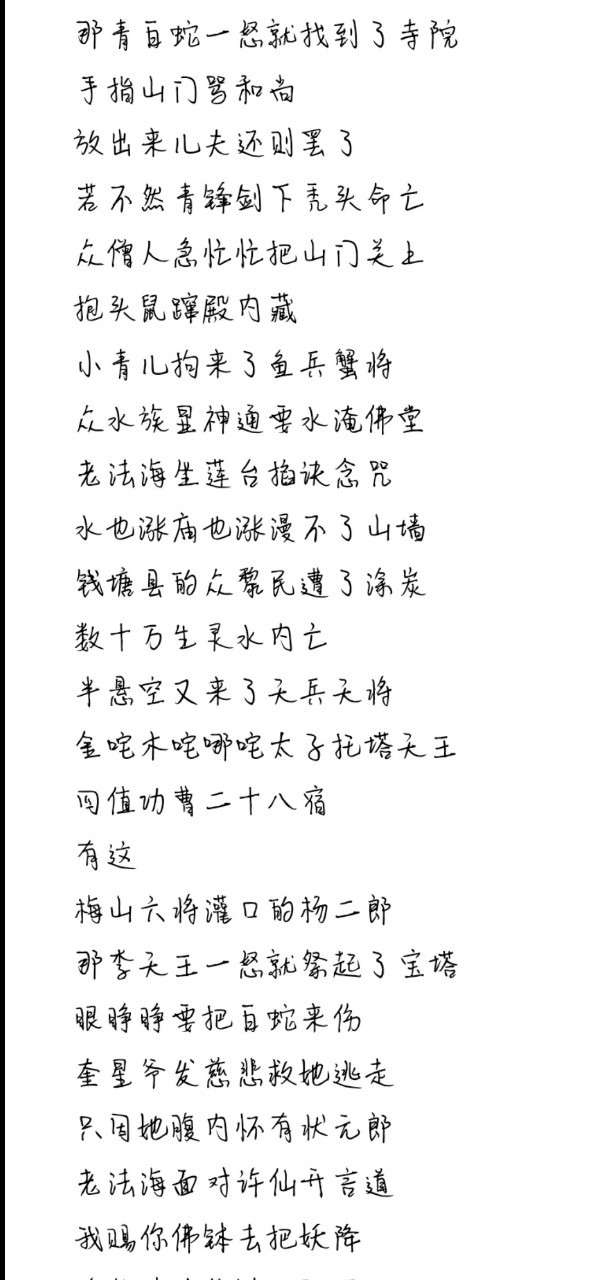 那青白蛇一怒就找到了寺院
手指山门骂和尚
放出来儿夫还则罢了
若不然青锋剑下秃头命亡
众僧人急忙忙把山门关上
抱头鼠蹿殿内藏
小青儿拘来了鱼兵蟹将
众水族显神通要水淹佛堂
老法海坐莲台掐诀念咒
水也涨庙也涨漫不了山墙
钱塘县的众黎民遭了涂炭
数十万生灵水内亡
半悬空又来了天兵天将
金咤木咤哪咤太子托塔天王
四值功曹二十八宿
有这
梅山六将灌口的杨二郎
那李天王一怒就祭起了宝塔
眼睁睁要把白蛇来伤
奎星爷发慈悲救她逃走
只因她腹内怀有状元郎
老法海面对许仙开言道
我赐你佛钵去把妖降